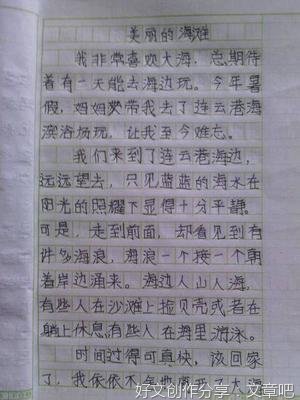 美丽的海滩
我非常喜欢大海，总期待
着有一天能去海边玩。今年暑
假，妈妈带我去了连云港海
滨浴场玩，让我至今难忘。
我们来到了连云港海边，
远远望去，只见蓝蓝的海水在
阳光的照耀下显得十分平静。
可是，走到前面，却看见到有
许多海浪，海浪一个接一个朝
着岸边涌来。海边人山人海，
有些人在沙滩上捡贝壳或者在
躺上休息，有些人在海里游泳。
时间过得可真快，该回家
了，我依依不舍地离开了大海
好文创作分享：文章吧